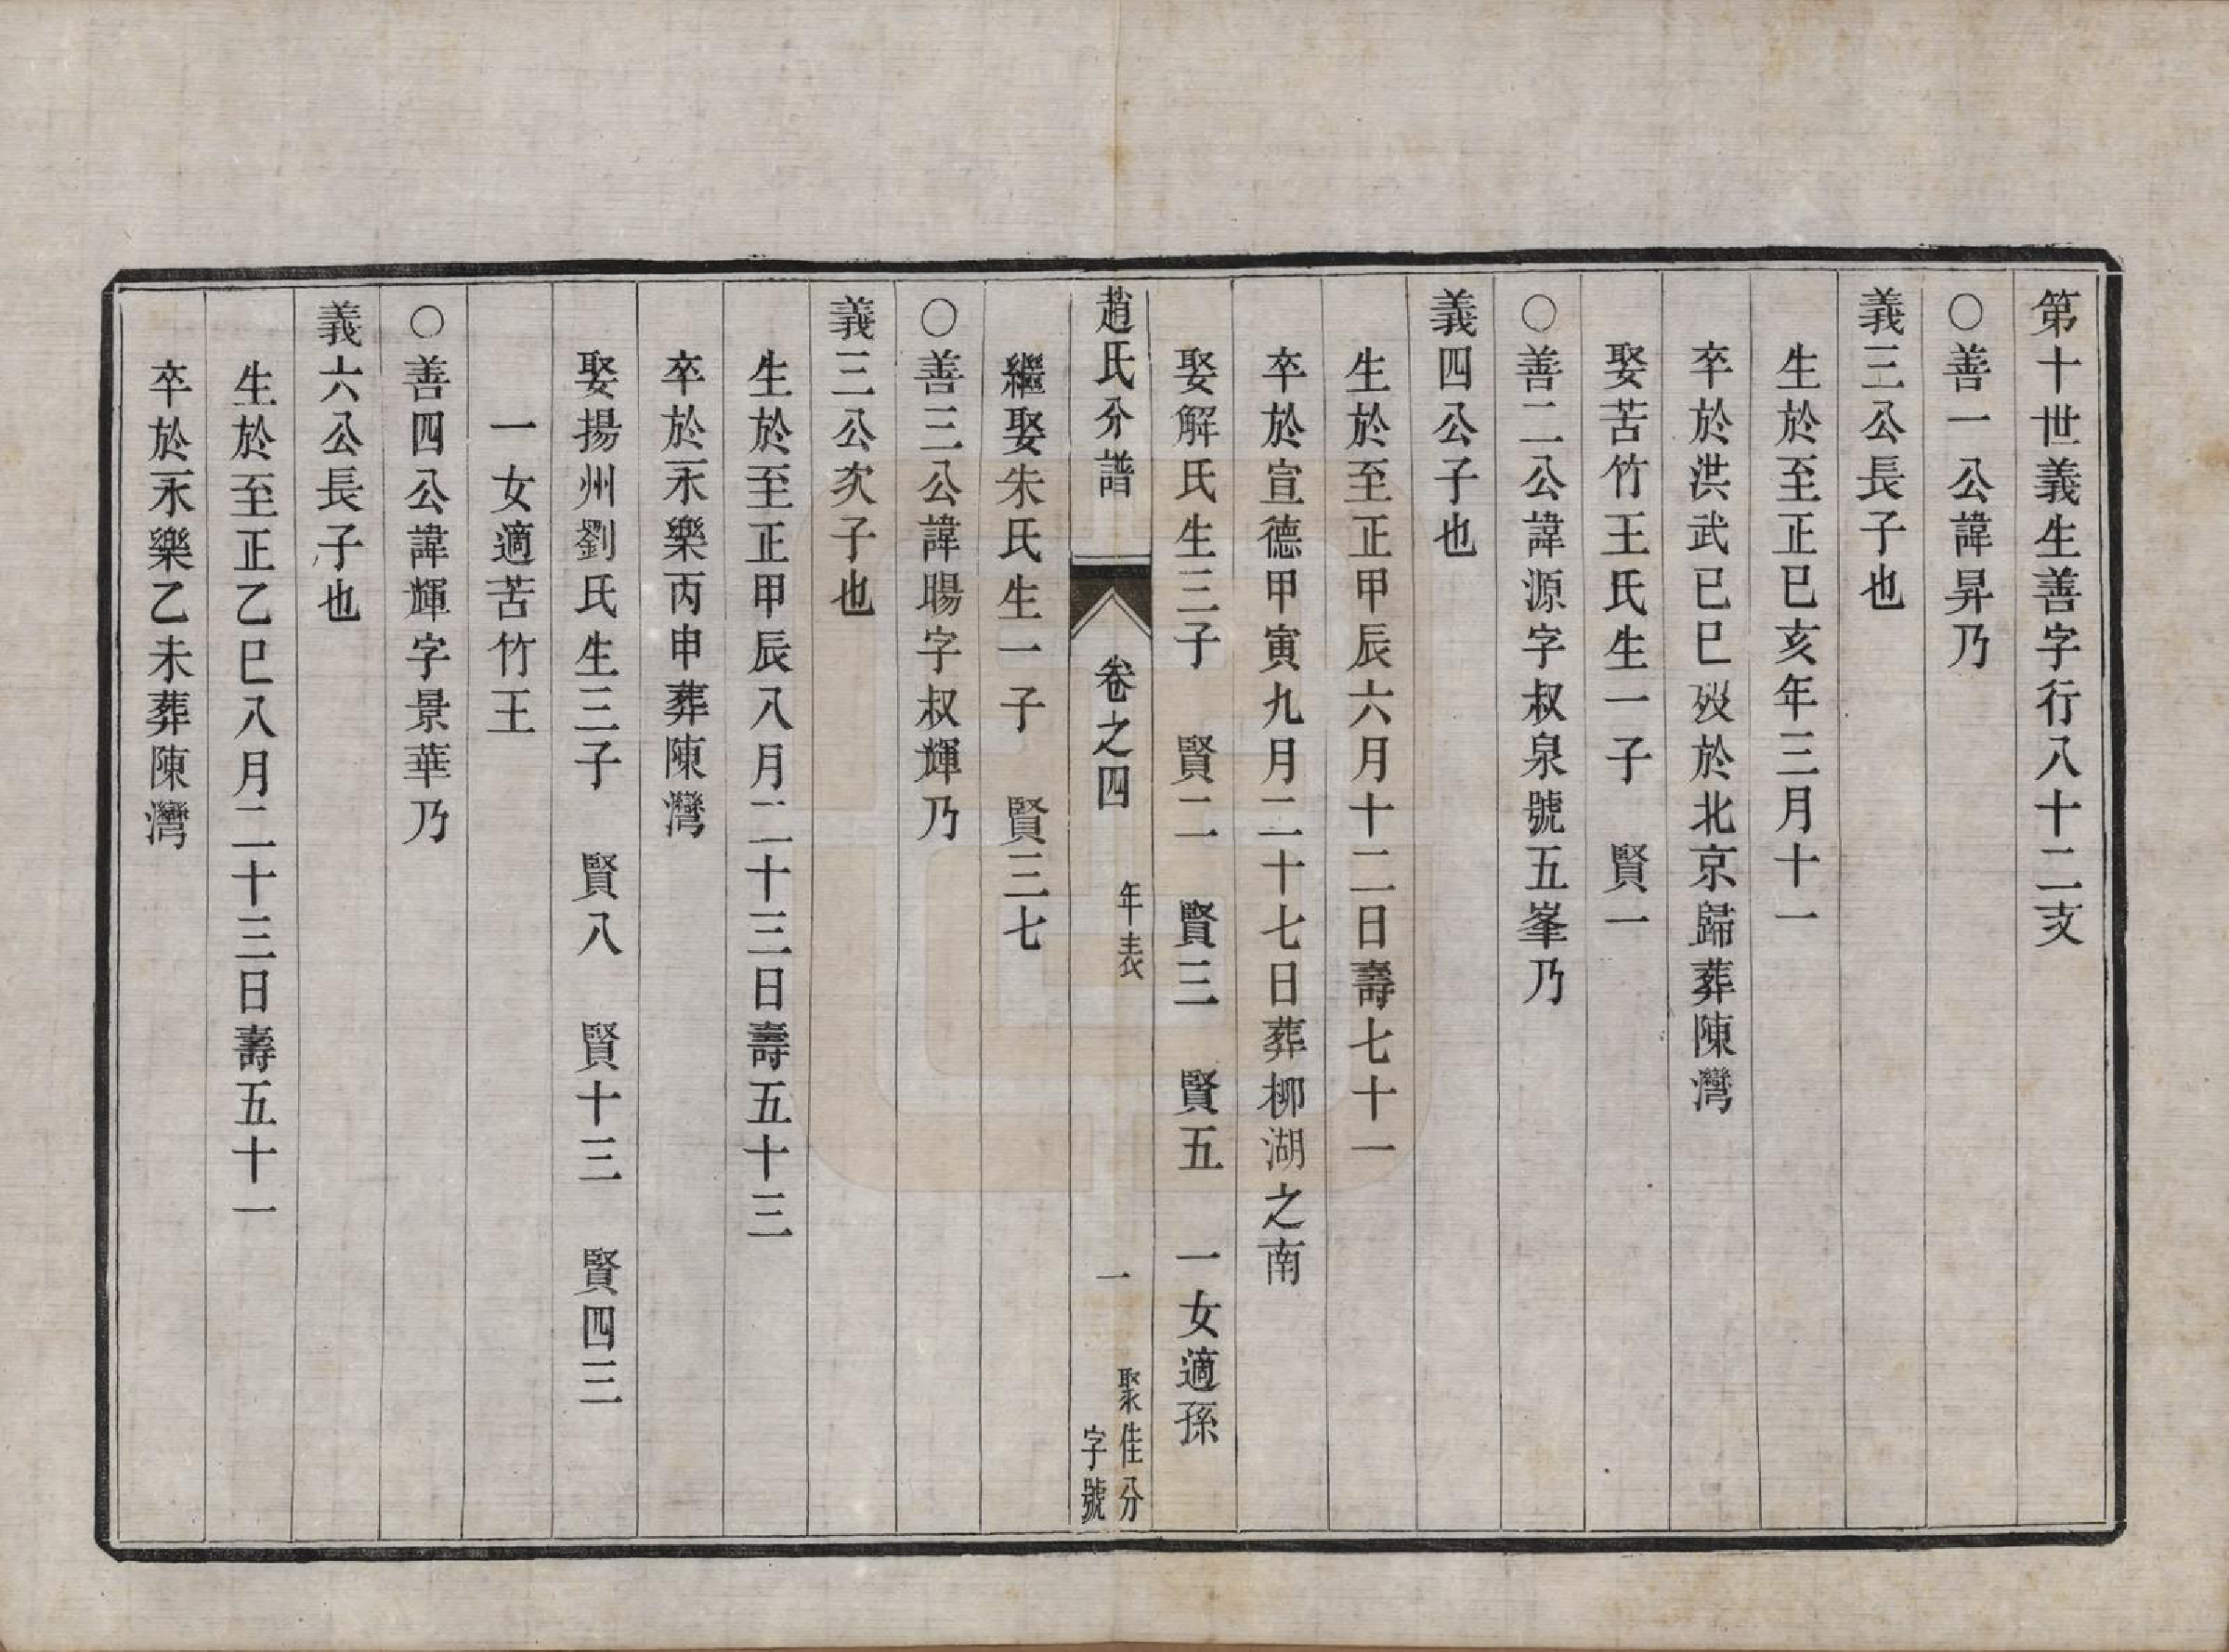 第十世義生善字行八十二支
○善一公諱昇乃
義三公長子也
生於至正己亥年三月十一
卒於洪武己巳歿於北京歸葬陳灣
娶苦竹王氏生一子　賢一
○善二公諱源字叔泉號五峯乃
義四公子也
生於至正甲辰六月十二日壽七十一
卒於宣德甲寅九月二十七日葬柳湖之南
娶解氏生三子　賢二　賢三　賢五　一女適孫
趙氏分譜　卷之四　年表　一　聚佳分字號
繼娶朱氏生一子　賢三七
○善三公諱暘字叔輝乃
義三公次子也
生於至正甲辰八月二十三日壽五十三
卒於永樂丙申葬陳灣
娶揚州劉氏生三子　賢八　賢十三　賢四三
一女適苦竹王
○善四公諱輝字景華乃
義六公長子也
生於至正乙巳八月二十三日壽五十一
卒於永樂乙未葬陳灣